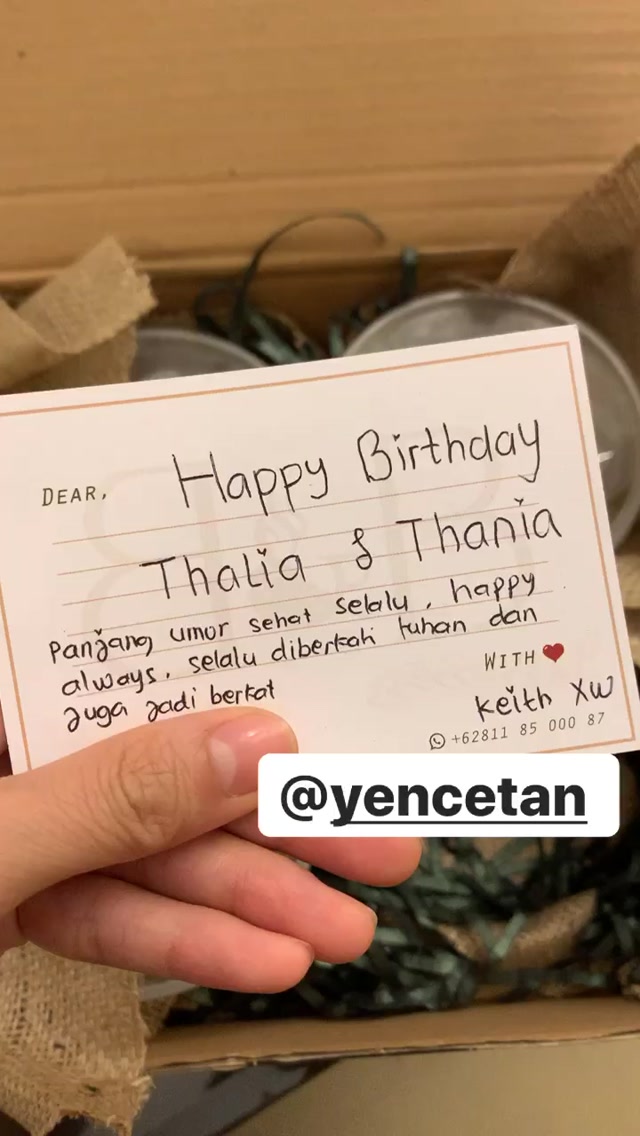 DEAR, Happy Birthday
Thalia & Thania
Panjang umur sehat selalu, happy
always, selalu diberkati tuhan dan
juga jadi berkat
WITH ❤
Keith XW
+62811 85 000 87
@yencetan